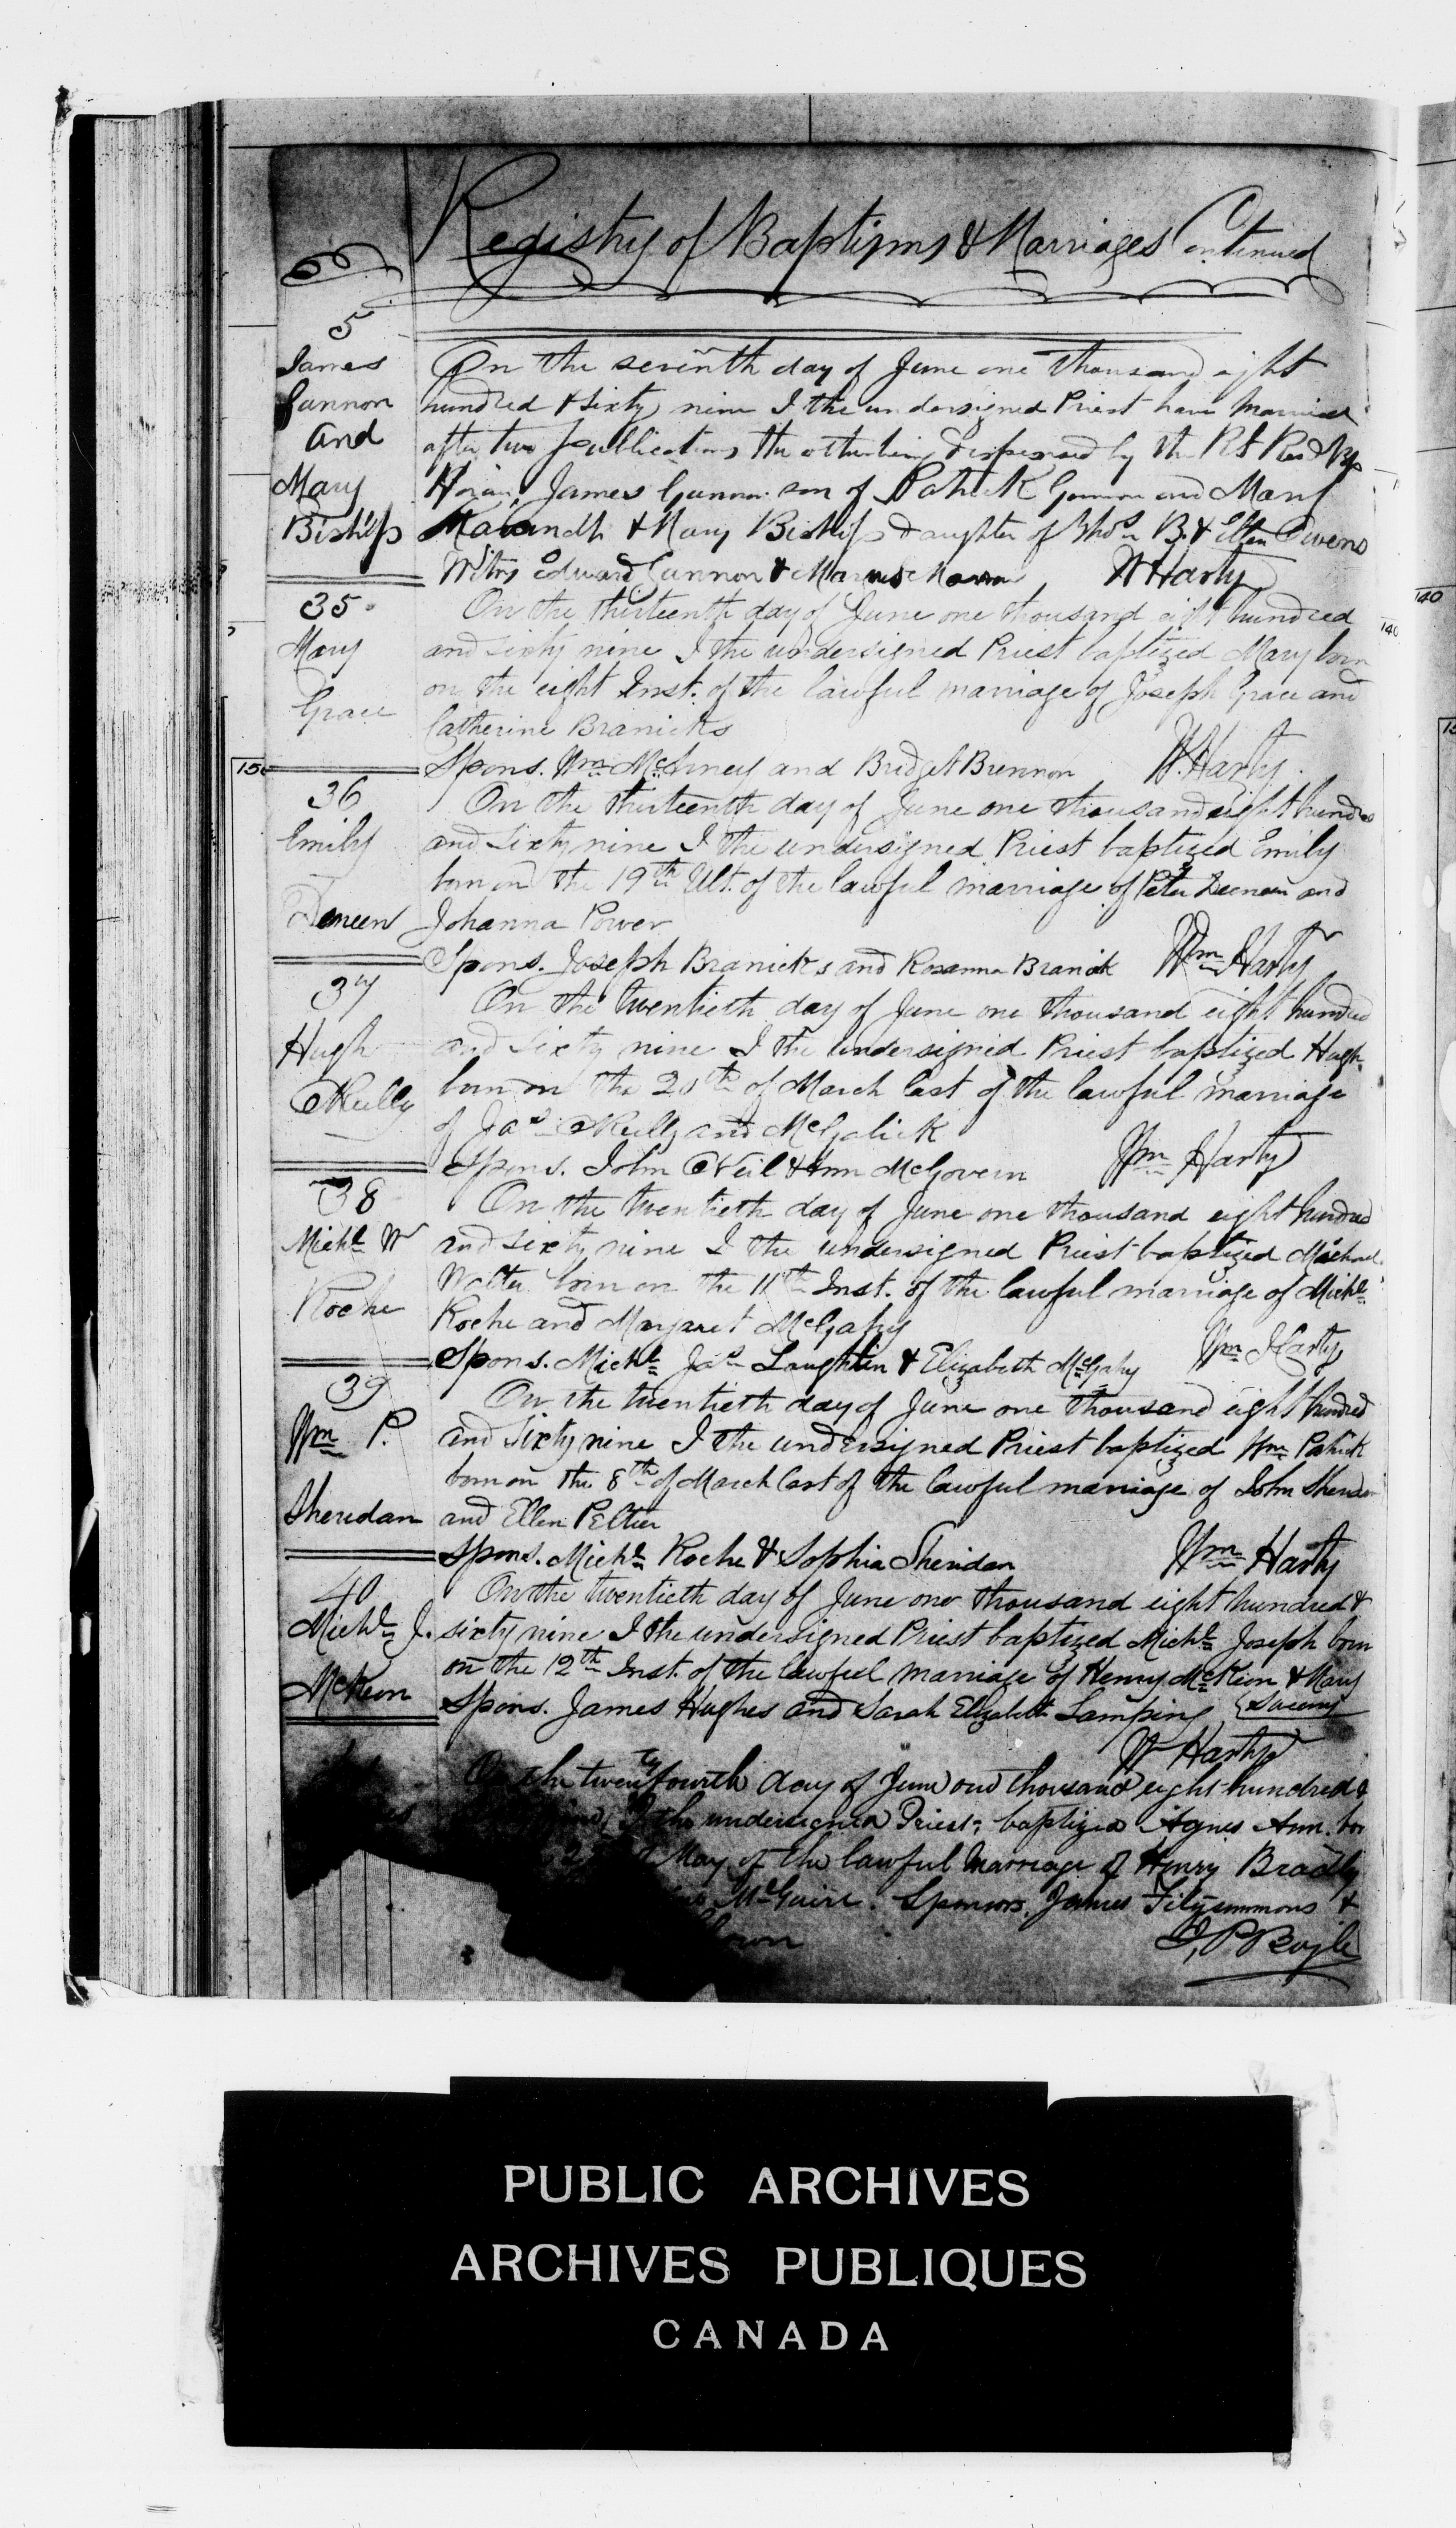 Registry of Baptisms & Marriages Continued
5
James
Gannon
and
Mary
Biships
On the seventh day of June one thousand eight
hundred & sixty nine I the undersigned Priest have married
after two publications the other being dispensed by the Rt Revd Bp
Horan, James Gannon son of Patrick Gannon and Mary
& Mary Biships daughter of Thos B. & Ellen Owens
Witns Edward Gannon & W Harty
35
Mary
Grace
On the thirteenth day of June one thousand eight hundred
and sixty nine I the undersigned Priest baptized Mary born
on the eight Inst. of the lawful marriage of Joseph Grace and
Catherine Branicks
Spons. Wm and Bridget Brennon W. Harty
150
36
Emily
Deneen
On the thirteenth day of June one thousand eight hundred
and sixty nine I the undersigned Priest baptized Emily
born on the 19th Ult. of the lawful marriage of Peter Deneen and
Johanna Power
Spons. Joseph Branicks and Rosanna Branick Wm Harty
37
Hugh
OReilly
On the twentieth day of June one thousand eight hundred
and sixty nine I the undersigned Priest baptized Hugh
born on the 20th of March last of the lawful marriage
of Jas OReilly and McGolick
Spons. John ONeil & Ann McGovern Wm Harty
38
Michl W
Roche
On the twentieth day of June one thousand eight hundred
and sixty nine I the undersigned Priest baptized Michael
Walter born on the 11th Inst. of the lawful marriage of Michl
Roche and Margaret McGahy
Spons. Michl Jas Laughlin & Elizabeth McGahy Wm Harty
39
Wm P.
Sheridan
On the twentieth day of June one thousand eight hundred
and sixty nine I the undersigned Priest baptized Wm Patrick
born on the 8th of March last of the lawful marriage of John Sheridan
and Ellen Peltier
Spons. Michl Roche & Sophia Sheridan Wm Harty
40
Michl J.
McKeon
On the twentieth day of June one thousand eight hundred &
sixty nine I the undersigned Priest baptized Michl Joseph born
on the 12th Inst. of the lawful marriage of Henry McKeon & Mary
Spons. James Hughes and Sarah Elizabeth Lamping
W Harty
On the twenty fourth day of June one thousand eight hundred &
nine, I the undersigned Priest, baptized Agnes Ann. bor
May of the lawful Marriage of Henry Bradly
McGuire. Sponsors, James Fitzsimmons &
J, P Boyle
140
140
PUBLIC ARCHIVES
ARCHIVES PUBLIQUES
CANADA